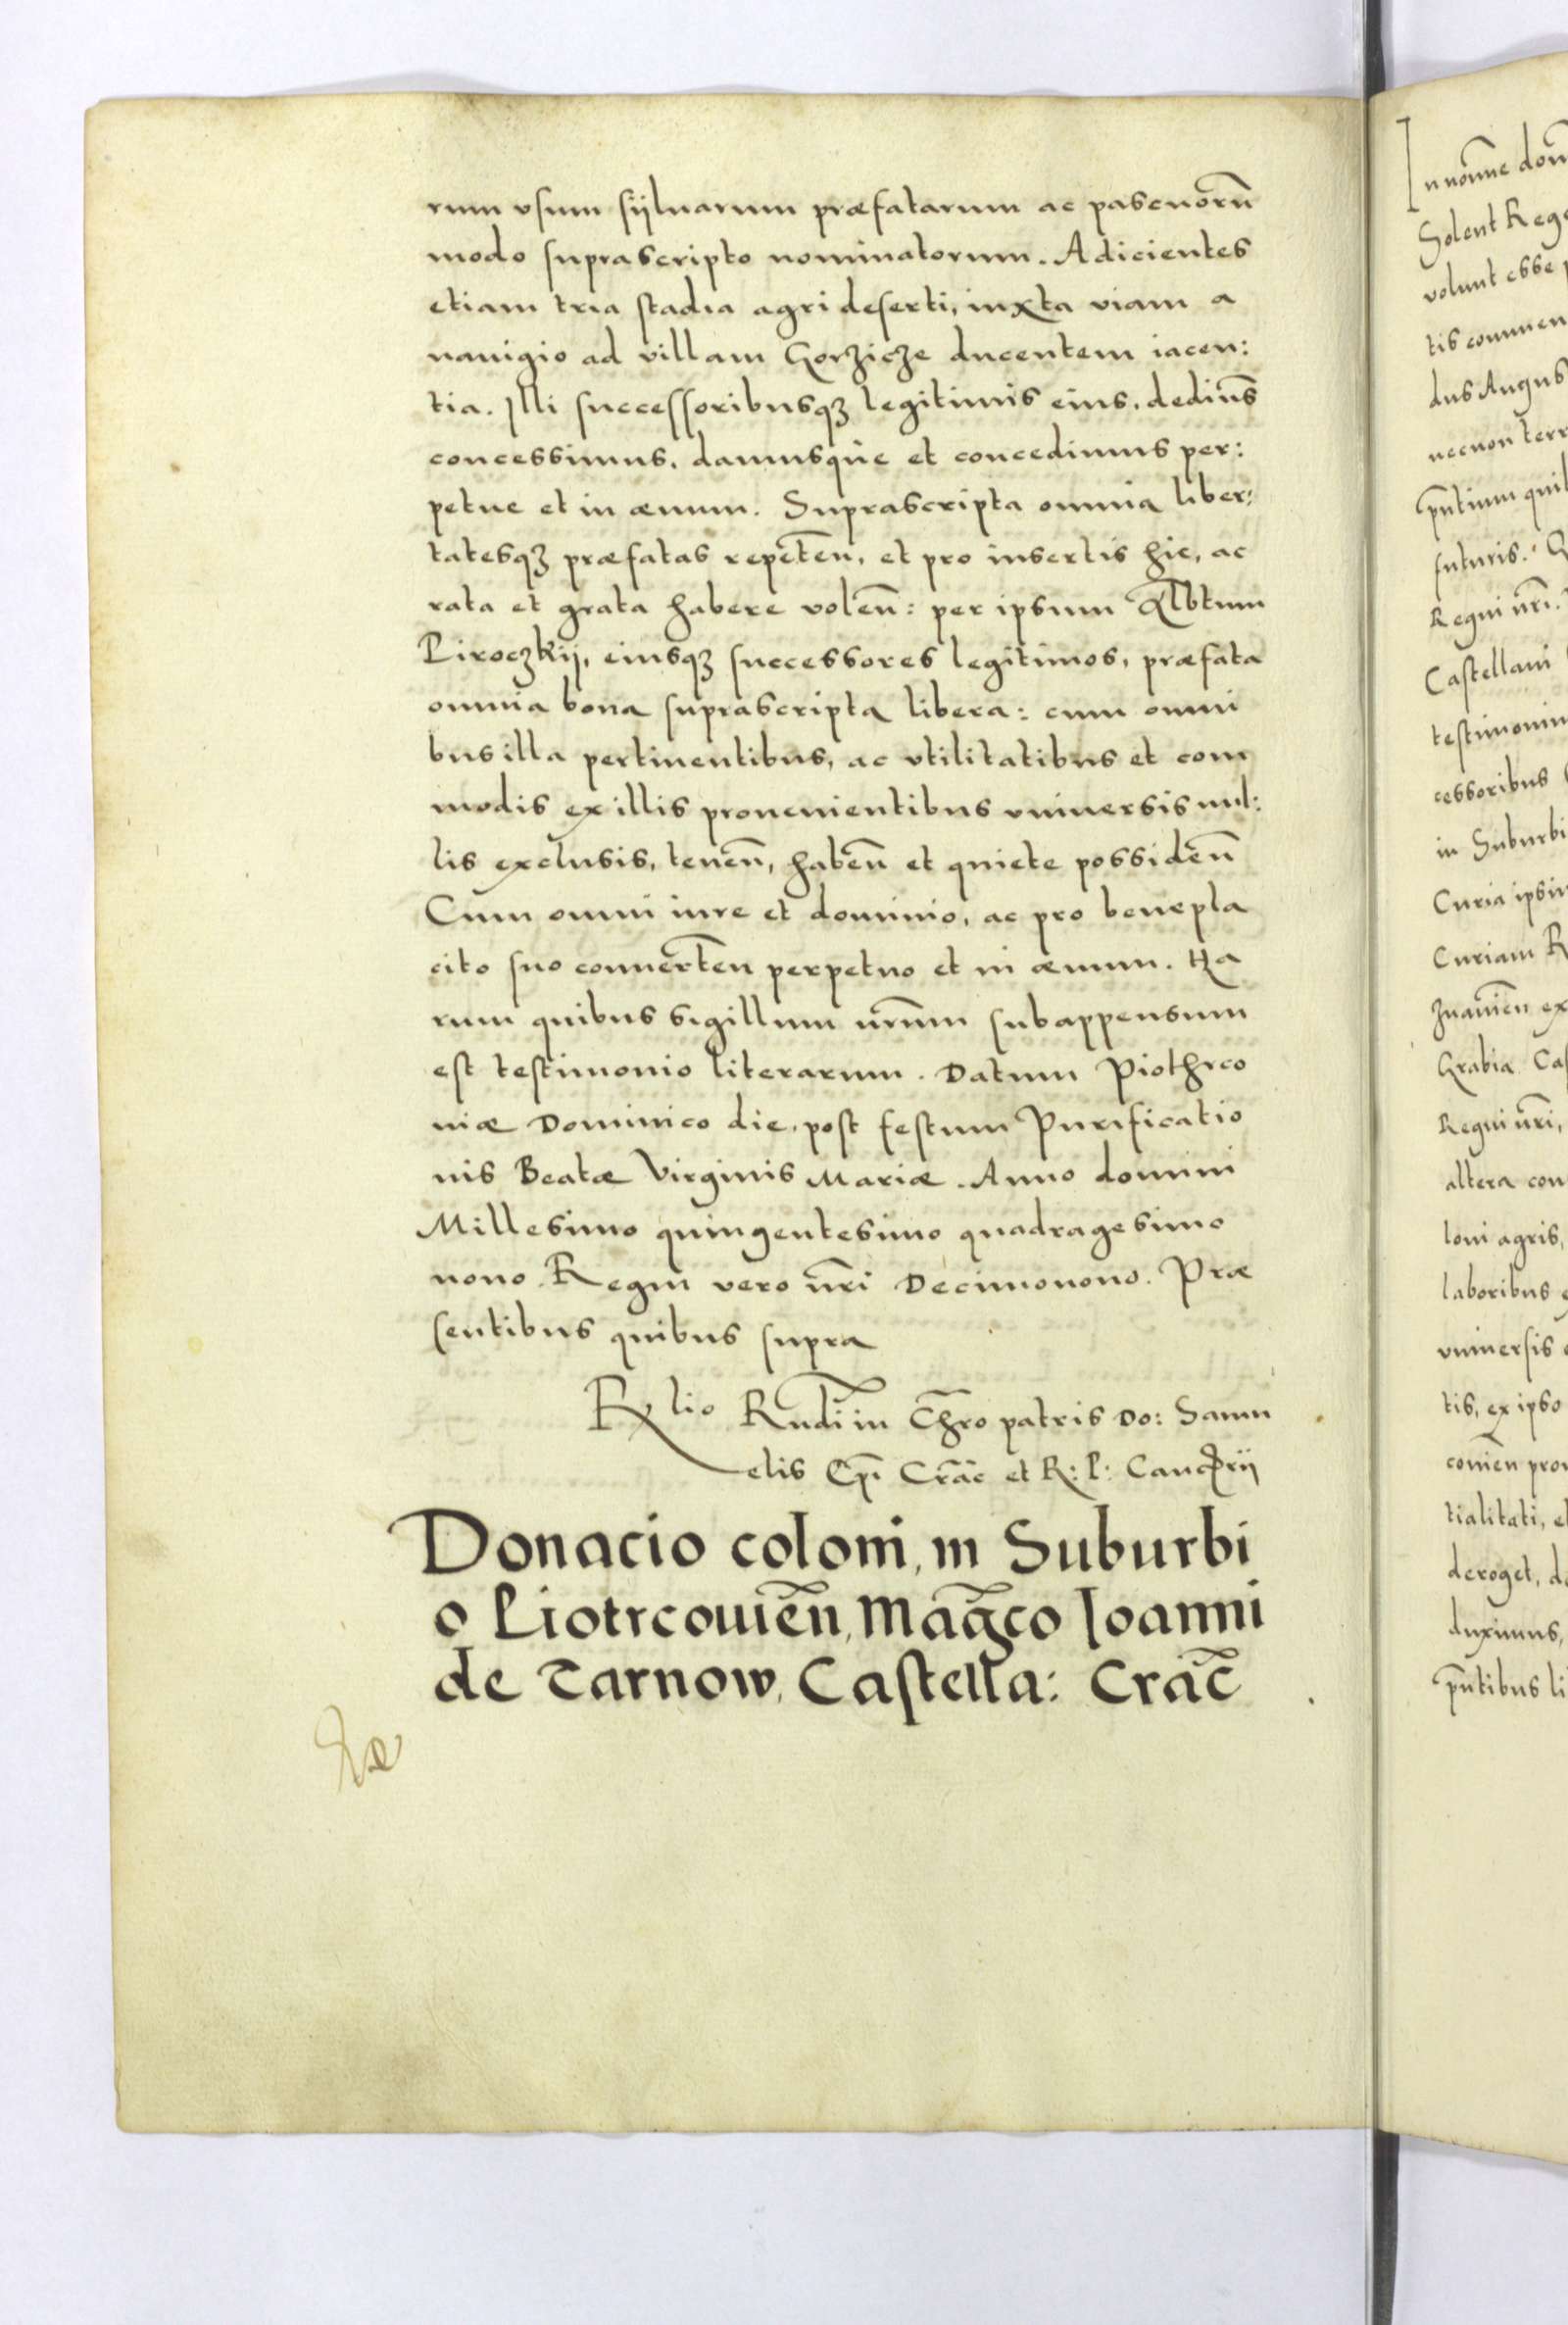 rum vsum sijluarum præfatarum ac pascuorū
modo suprascripto nominatorum. Adicientes
etiam tria stadia agri deserti, iuxta viam a
nauigio ad villam Gorzicze ducentem iacen:
tia. Illi successoribusqꝫ legitimis eius, dedim̄s
concessimus, damusque et concedimus per:
petue et in æuum. Suprascripta omnia liber:
tatesqꝫ præfatas repeten̄, et pro insertis hic, ac
rata et grata habere volen̄: per ipsum Albtum
Piroczkij, eiusqꝫ successores legitimos, præfata
omnia bona suprascripta libera: cum omni
bus illa pertinentibus, ac vtilitatibus et com
modis ex illis prouenientibus vniuersis nul:
lis exclusis, tenen̄, haben̄ et quiete possiden̄
Cum omni iure et dominio, ac pro benepla
cito suo conuerten̄ perpetuo et in æuum. Ha
rum quibus sigillum nr̄um subappensum
est testimonio literarum. Datum Piothrco
uiæ Dominico die, post festum Purificatio
nis Beatæ Virginis Mariæ. Anno domini
Millesimo quingentesimo quadragesimo
nono. Regni vero nr̄i Decimonono. Præ
sentibus quibus supra
Rx̄lio Rn̄di in Chr̄o patris Do: Samu
elis Ep̄i Crac̄ et R: P: Canc̄rij
Donacio coloni, in Suburbi
o Piotrcouien̄, Maḡco Ioanni
de Tarnow, Castella: Crac̄
In
Solent
volunt esse
tis
dus
necnon
pn̄tium
futuris.
Regni nr̄i.
Castellani
cessoribus
in
Curia
Curiam
ex
Grabia
Regni nr̄i,
altera
loni agris,
laboribus
vniuersis
tis, ex ipso
tialitati,
deroget,
duximus,
pn̄tibus